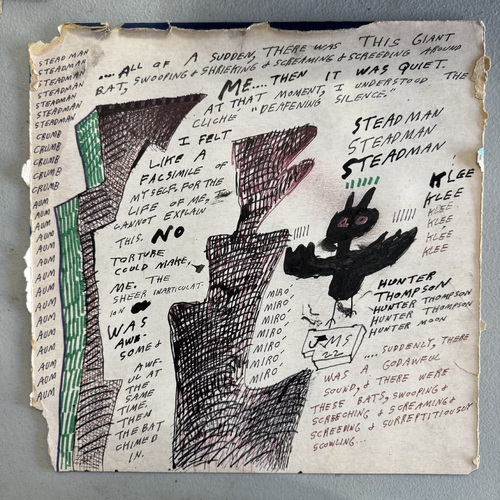 ....ALL OF A SUDDEN, THERE WAS THIS GIANT
BAT, SWOOPING & SHRIEKING & SCREAMING & SCREEDING AROUND
ME.... THEN IT WAS QUIET.
AT THAT MOMENT, I UNDERSTOOD THE
CLICHÉ "DEAFENING SILENCE."
STEADMAN
STEADMAN
STEADMAN
STEADMAN
STEADMAN
STEADMAN
CRUMB
CRUMB
CRUMB
CRUMB
CRUMB
AUM
AUM
AUM
AUM
AUM
AUM
AUM
AUM
AUM
AUM
AUM
AUM
I FELT
LIKE A
FACSIMILE OF
MYSELF. FOR THE
LIFE OF ME, I
CANNOT EXPLAIN
THIS. NO
TORTURE
COULD MAKE
ME. THE
SHEER INARTICULAT-
ION
WAS
AWE-
SOME &
AWF-
UL AT
THE
SAME
TIME.
THEN
THE BAT
CHIMED
IN.
STEADMAN
STEADMAN
STEADMAN
KLEE
KLEE
KLEE
KLEE
KLEE
KLEE
MIRÓ
MIRÓ
MIRÓ
MIRÓ
MIRÓ
MIRÓ
MIRÓ
HUNTER
THOMPSON
HUNTER THOMPSON
HUNTER THOMPSON
HUNTER MOON
JMS
22
....SUDDENLY, THERE
WAS A GODAWFUL
SOUND, & THERE WERE
THESE BATS, SWOOPING &
SCREECHING & SCREAMING &
SCREEDING & SURREPTITIOUSLY
SCOWLING...